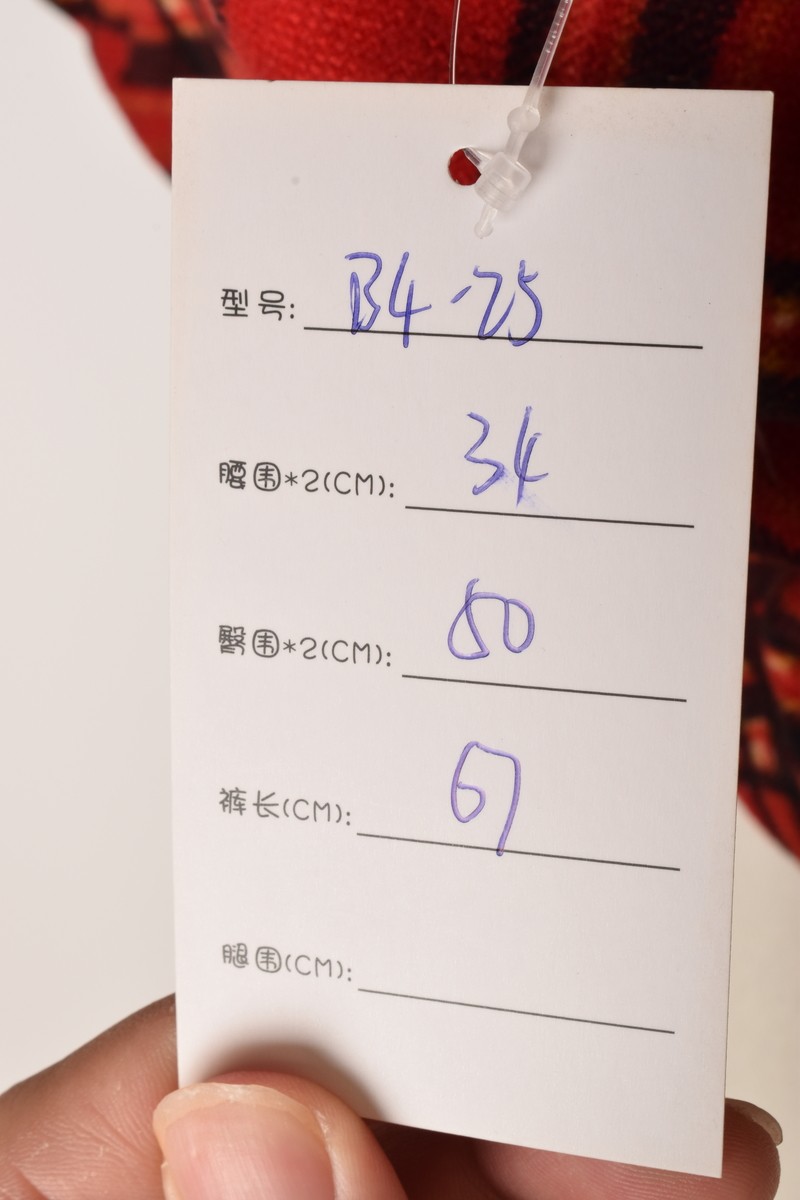 型号: B4-25
腰围*2(CM): 34
臀围*2(CM): 50
裤长(CM): 67
腿围(CM):